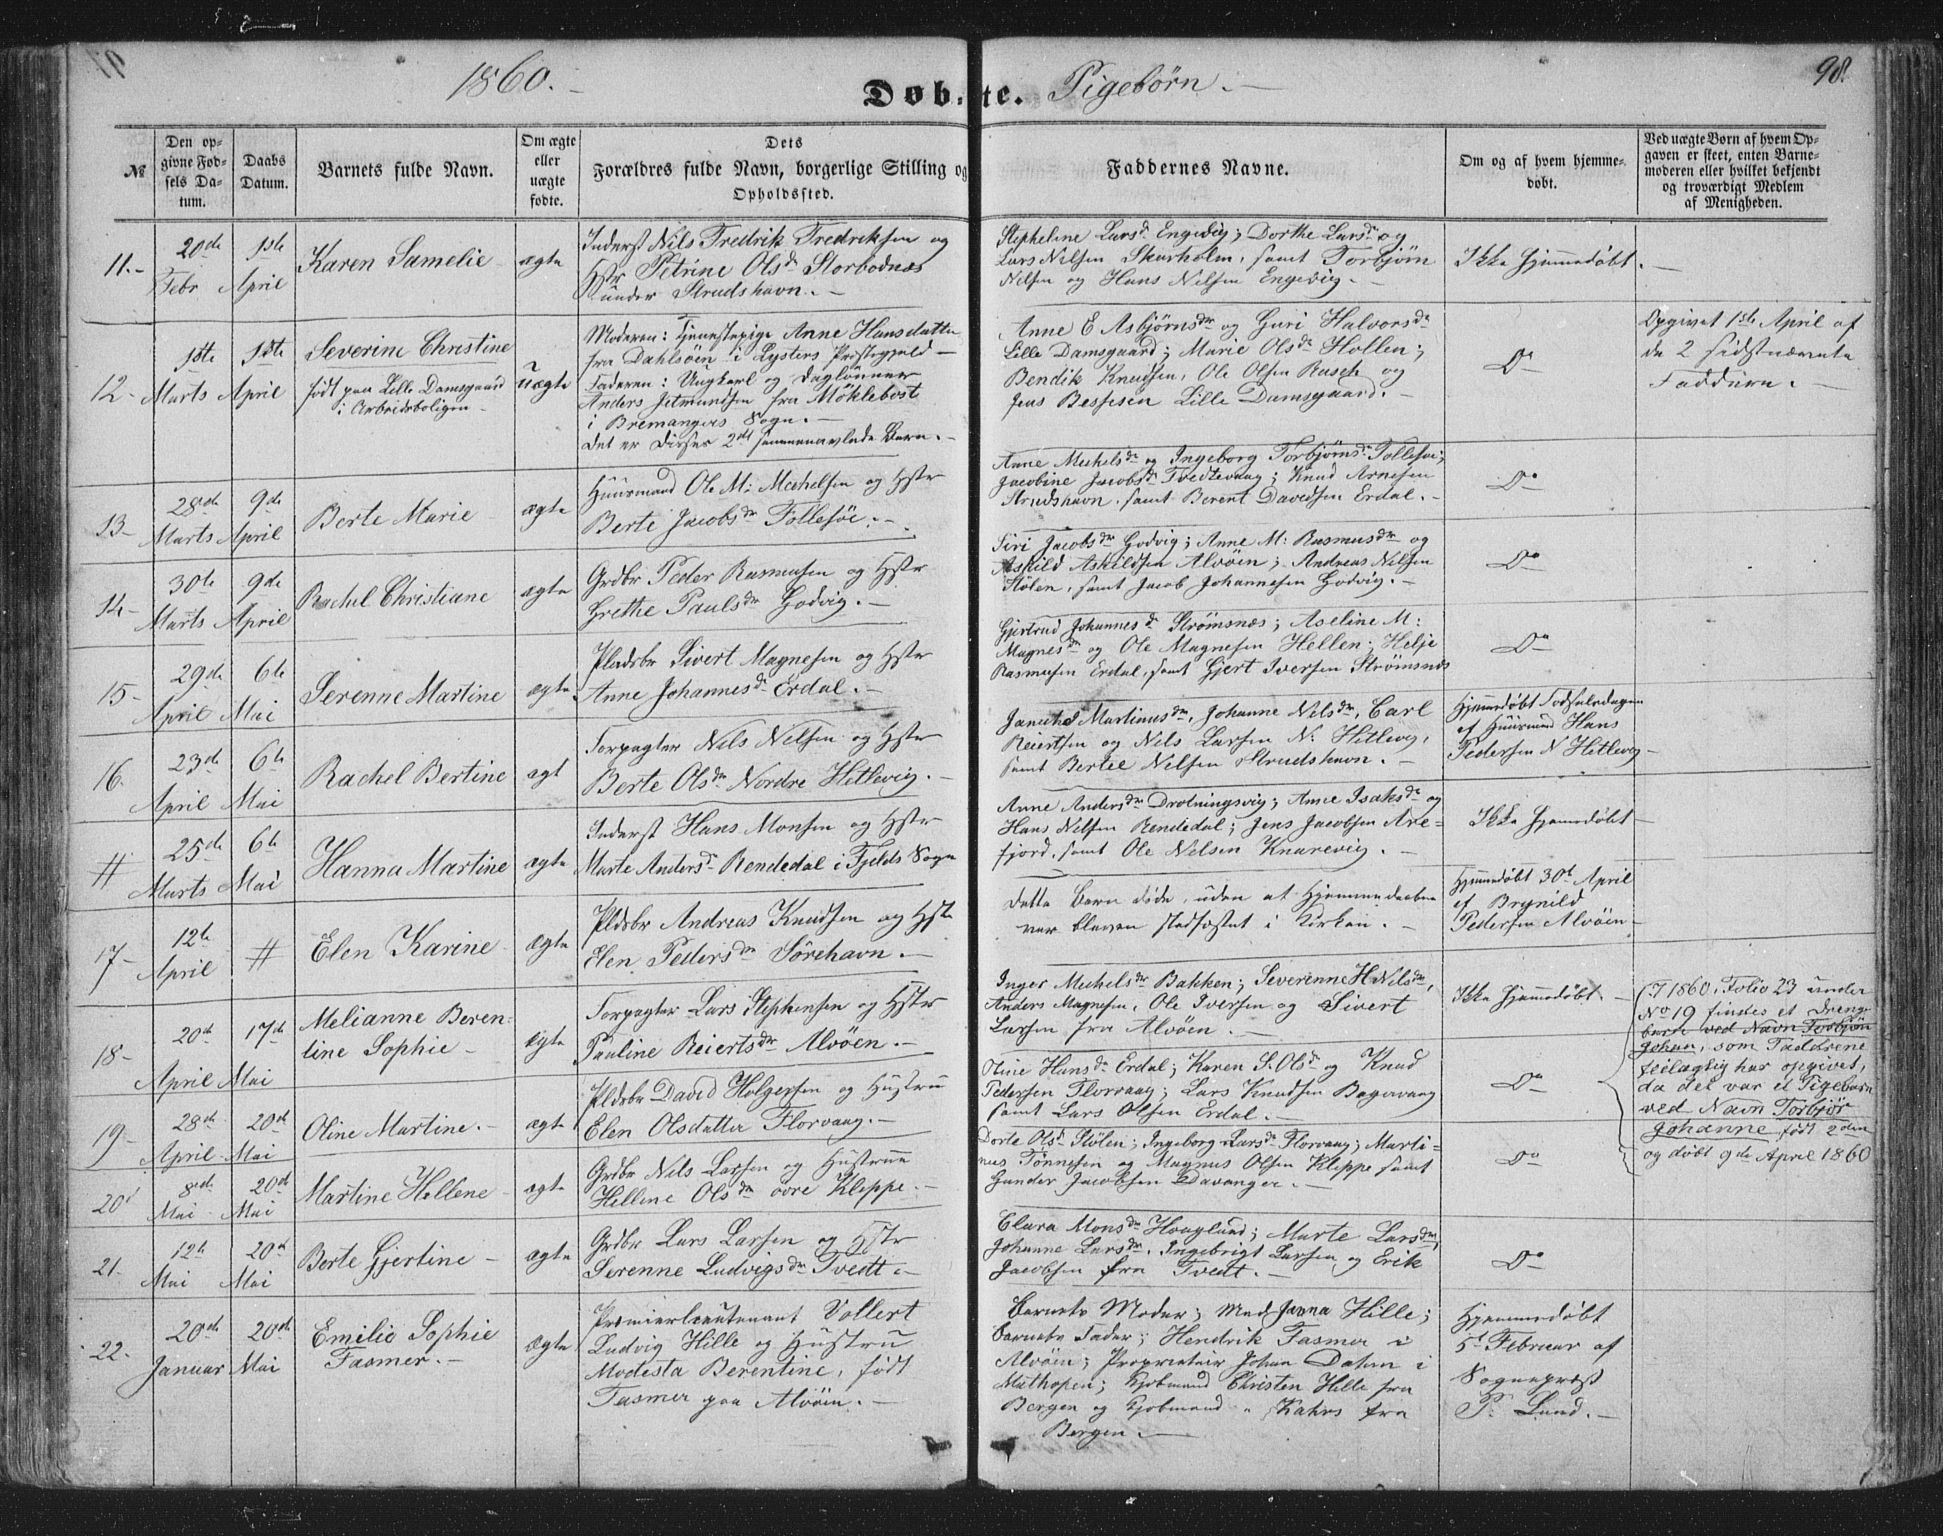 1860.
Døbte. Pigebørn.
98.
№
Den opgivne Fødsels Datum.
Daabs Datum.
Barnets fulde Navn.
Om ægte eller uægte fødte.
Dets
Forældres fulde Navn, borgerlige Stilling og
Opholdssted.
Faddernes Navne.
Om og af hvem hjemmedøbt.
Ved uægte Børn af hvem Opgaven er skeet, enten Barnemoderen eller hvilket bekjendt og troværdigt Medlem af Menigheden.
11.
20de Febr
1ste April
Karen Samelie
ægte
Inderst Nils Fredrik Fredriksen og
Hstr Petrine Olsdr Storbodnæs
under Strudshavn.
Stepheline Larsdr Engevig; Dorthe Larsdr og
Lars Nilsen Skarholm, samt Torbjørn
Nilsen og Hans Nilsen Engevig.
Ikke hjemmedøbt.
12
18te Marts
18te April
Severine Christine
født paa Lille Damsgaard
i Arbeidsboligen
uægte
Moderen: Tjenestepige Anne Hansdatter
fra Dahlsøen i Lysters Præstegjeld
Faderen: Ungkarl og Daglønner
Anders Jetmundsen fra Møklebost
i Bremangers Sogn.
Det er Disses 2det sammenavlede Barn.
Anne E Asbjørnsdr og Guri Halvorsdr
Lille Damsgaard; Marie Olsdr Hollen;
Bendik Knudsen, Ole Olsen Rasch og
Jens Bessesen Lille Damsgaard.
Do
Opgivet 1ste April af
de 2 sidstnævnte
Faddere.
13
28de Marts
9de April
Berte Marie
ægte
Huusmand Ole M: Mechelsen og Hstr
Berte Jacobsdr Follesøe.
Anne Mechelsdr og Ingeborg Torbjørnsdr Follesøe;
Jacobine Jacobsdr Tvedtevaag; Knud Arnesen
Strudshavn, samt Berent Davidsen Erdal.
Do
14
30te Marts
9de April
Rachel Christiane
ægte
Grdbr Peder Rasmusen og Hstr
Grethe Paulsdr Godvig.
Siri Jacobsdr Godvig; Anne M: Rasmusdr og
Askild Askildsen Alvøen; Andreas Nilsen
Stølen, samt Jacob Johannesen Godvig.
Do
15
29de April
6te Mai
Serenne Martine
ægte
Pladsbr Sivert Magnesen og Hstr
Anne Johannesdr Erdal.
Gjertrud Johannesdr Strømsnæs; Aseline M:
Magnesdr og Ole Magnesen Hellen; Helje
Rasmusen Erdal, samt Gjert Iversen Strømsnæs
Do
16.
23de April
6te Mai
Rachel Bertine
ægt
Forpagter Nils Nilsen og Hstr
Berte Olsdr Nordre Hetlevig.
Janiche Martinusdr, Johanne Nelsdr, Carl
Reiertsen og Nels Larsen N: Hetlevig,
samt Bertel Nilsen Strudshavn.
Hjemmedøbt Fødselsdagen
af Huusmand Hans
Pedersen N Hetlevig
#
25de Marts
6te Mai
Hanna Martine
ægte
Inderst Hans Monsen og Hstr
Marte Andersdr Rendedal i Fjelds Sogn
Anne Andersdr Drotningsvig; Anne Isaksdr og
Hans Nilsen Rendedal; Jens Jacobsen Are-
fjord, samt Ole Nelsen Knarevig.
Ikke hjemmedøbt
17
12te April
#
Elen Karine
ægte
Pldsbr Andreas Knudsen og Hstr
Elen Pedersdr Sørehavn.
Dette Barn døde, uden at Hjemmedaaben
var bleven stadfæstet i Kirken.
Hjemmedøbt 30te April
af Brynild
Pedersen Alvøen
18
20de April
17de Mai
Melianne Beren-
tine Sophie
ægte
Forpagter Lars Stephensen og Hstr
Pauline Reiertsdr Alvøen.
Inger Mechelsdr Bakken; Severenne H Nilsdr,
Anders Magnesen, Ole Iversen og Sivert
Larsen fra Alvøen.
Ikke hjemmedøbt.
I 1860, Folio 23 under
No 19 findes et Drenge-
barn ved Navn Torbjørn
Johan, som Faddrene
feilagtig har opgivet,
da det var et Pigebarn
ved Navn Torbjør
Johanne født 2den
og døbt 9de April 1860
19
28de April
20de Mai
Oline Martine.
ægte
Pldsbr David Holgersen og Hustru
Elen Olsdatter Florvaag.
Oline Hansdr Erdal; Karen S. Olsdr og Knud
Pedersen Florvaag; Lars Knudsen Bagevaag
samt Lars Olsen Erdal.
Do
20
8de Mai
20de Mai
Martine Hellene
ægte
Grdbr Nils Larsen og Hustrue
Hellene Olsdr øvre Kleppe.
Dorte Olsdr Stølen; Ingeborg Larsdr Florvaag; Marti-
nus Tønnesen og Magnus Olsen Kleppe samt
Gunder Jacobsen Davanger.
Do
21.
12te Mai
20de Mai
Berte Gjertine
ægte
Grdbr Lars Larsen og Hstr
Serenne Ludvigsdr Tvedt
Clara Monsdr Hauglund; Marte Larsdr,
Johanne Larsdr, Ingebrigt Larsen og Erik
Jacobsen fra Tvedt.
Do
22.
20de Januar
20de Mai
Emilie Sophie
Fasmer.
ægte
Premierlieutenant Vollert
Ludvig Hille og Hustru
Modesta Berentine, født
Fasmer paa Alvøen.
Barnets Moder; Mad Janna Hille;
Barnets Fader; Hendrik Fasmer i
Alvøen; Proprietair Johan Dahm i
Mathopen; Kjøbmand Christen Hille fra
Bergen og Kjøbmand " Kahrs fra
Bergen.
Hjemmedøbt
5te Februar af
Sognepræst
P. Lund.